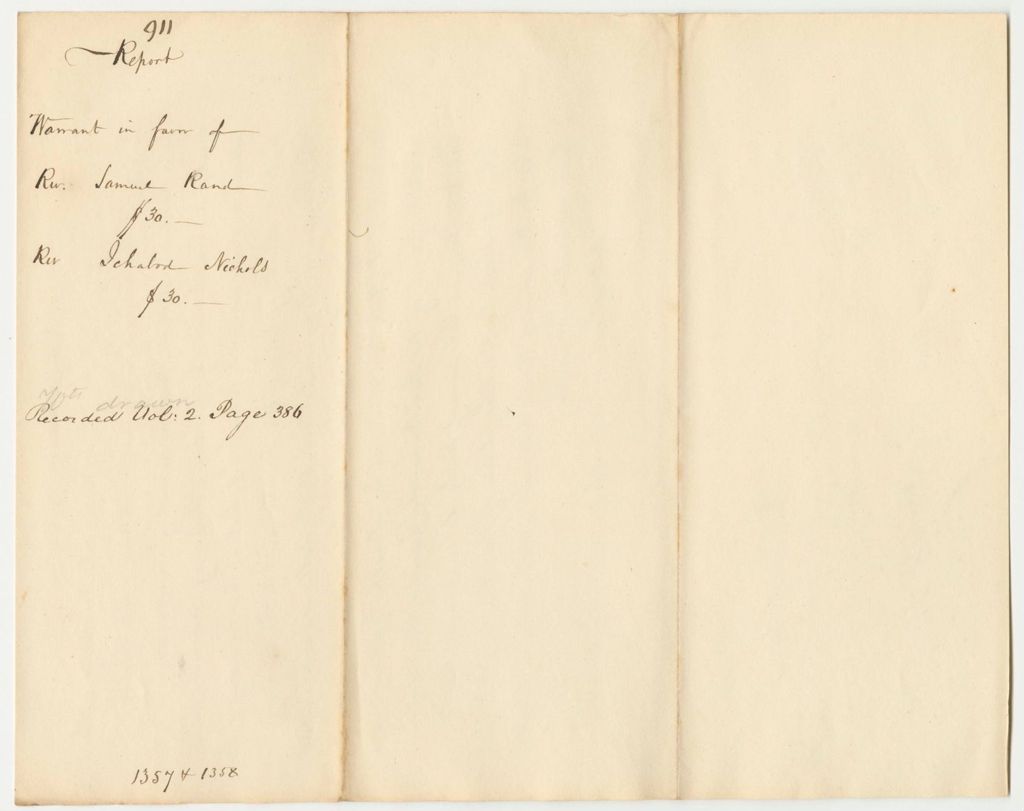 911
Report
Warrant in favor of
Rev. Samuel Rand
$30.—
Rev Ichabod Nichols
$30.—
drawn
Recorded Vol: 2. Page 386
1357 & 1358